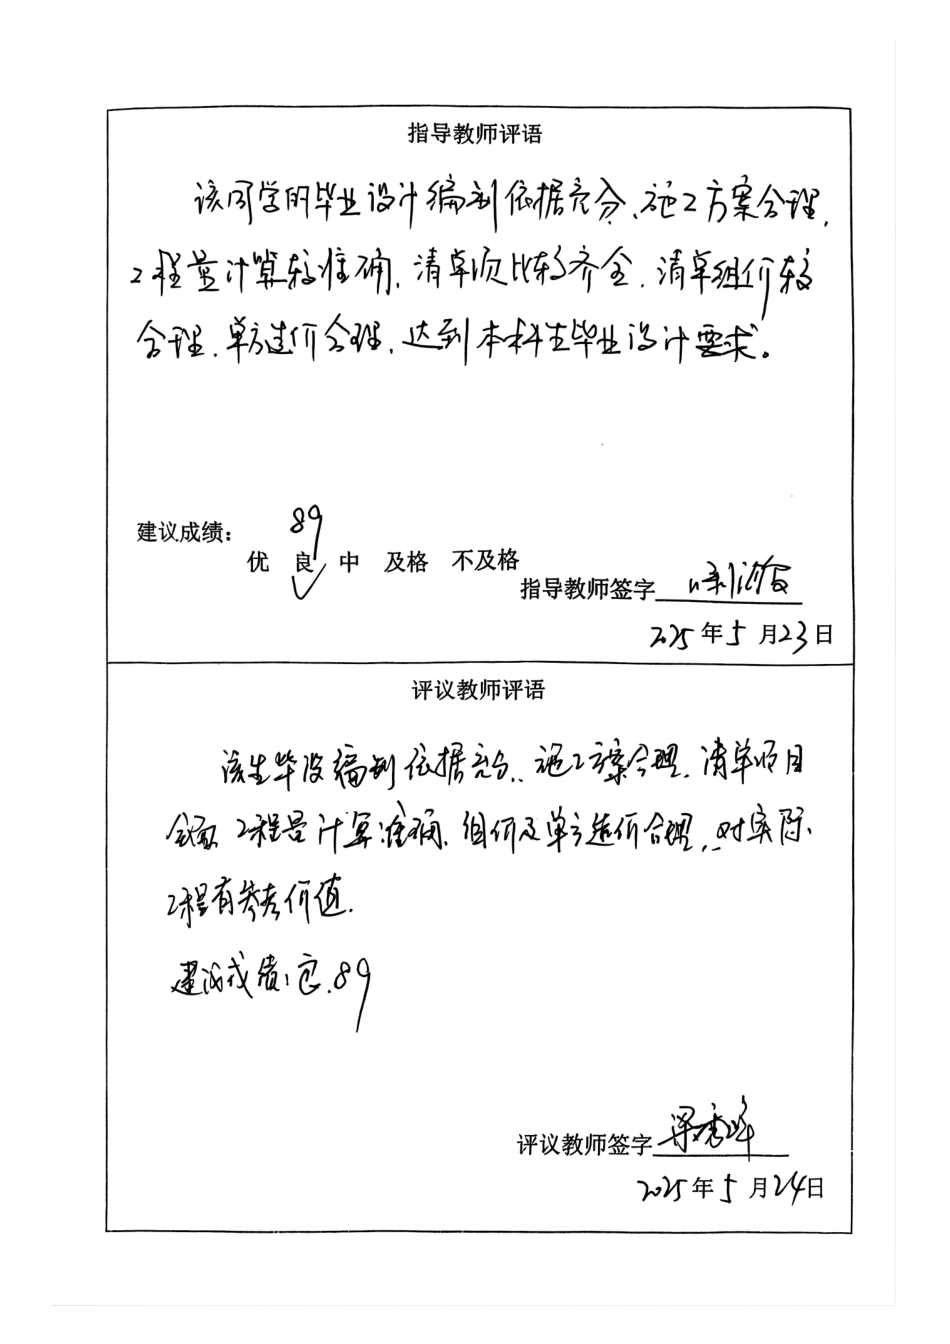 指导教师评语
该同学的毕业设计编制依据充分、施工方案合理,
工程量计算较准确,清单项比较齐全,清单组价较
合理,单方造价合理,达到本科生毕业设计要求。
89
建议成绩:
优 良 中 及格 不及格
指导教师签字
2025年5月23日
评议教师评语
该生毕设编制依据充分,施工方案合理,清单项目
工程量计算准确,组价及单方造价合理,对实际
工程有参考价值.
建议成绩:良.89
评议教师签字 梁秀峰
2025年5月24日